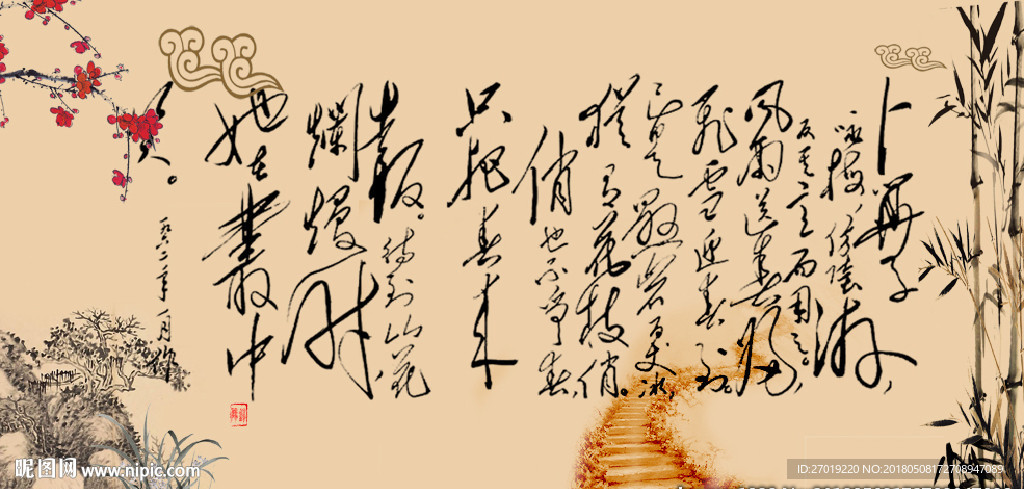 卜算子
咏梅，依陆游，
反其意而用之。
风雨送春归，
飞雪迎春到。
已是悬崖百丈冰，
犹有花枝俏。
俏也不争春，
只把春来
报。待到山花
烂漫时，
她在丛中
笑。
一九六二年一月作
昵图网 www.nipic.com
ID:27019220 NO:20180508172708947089